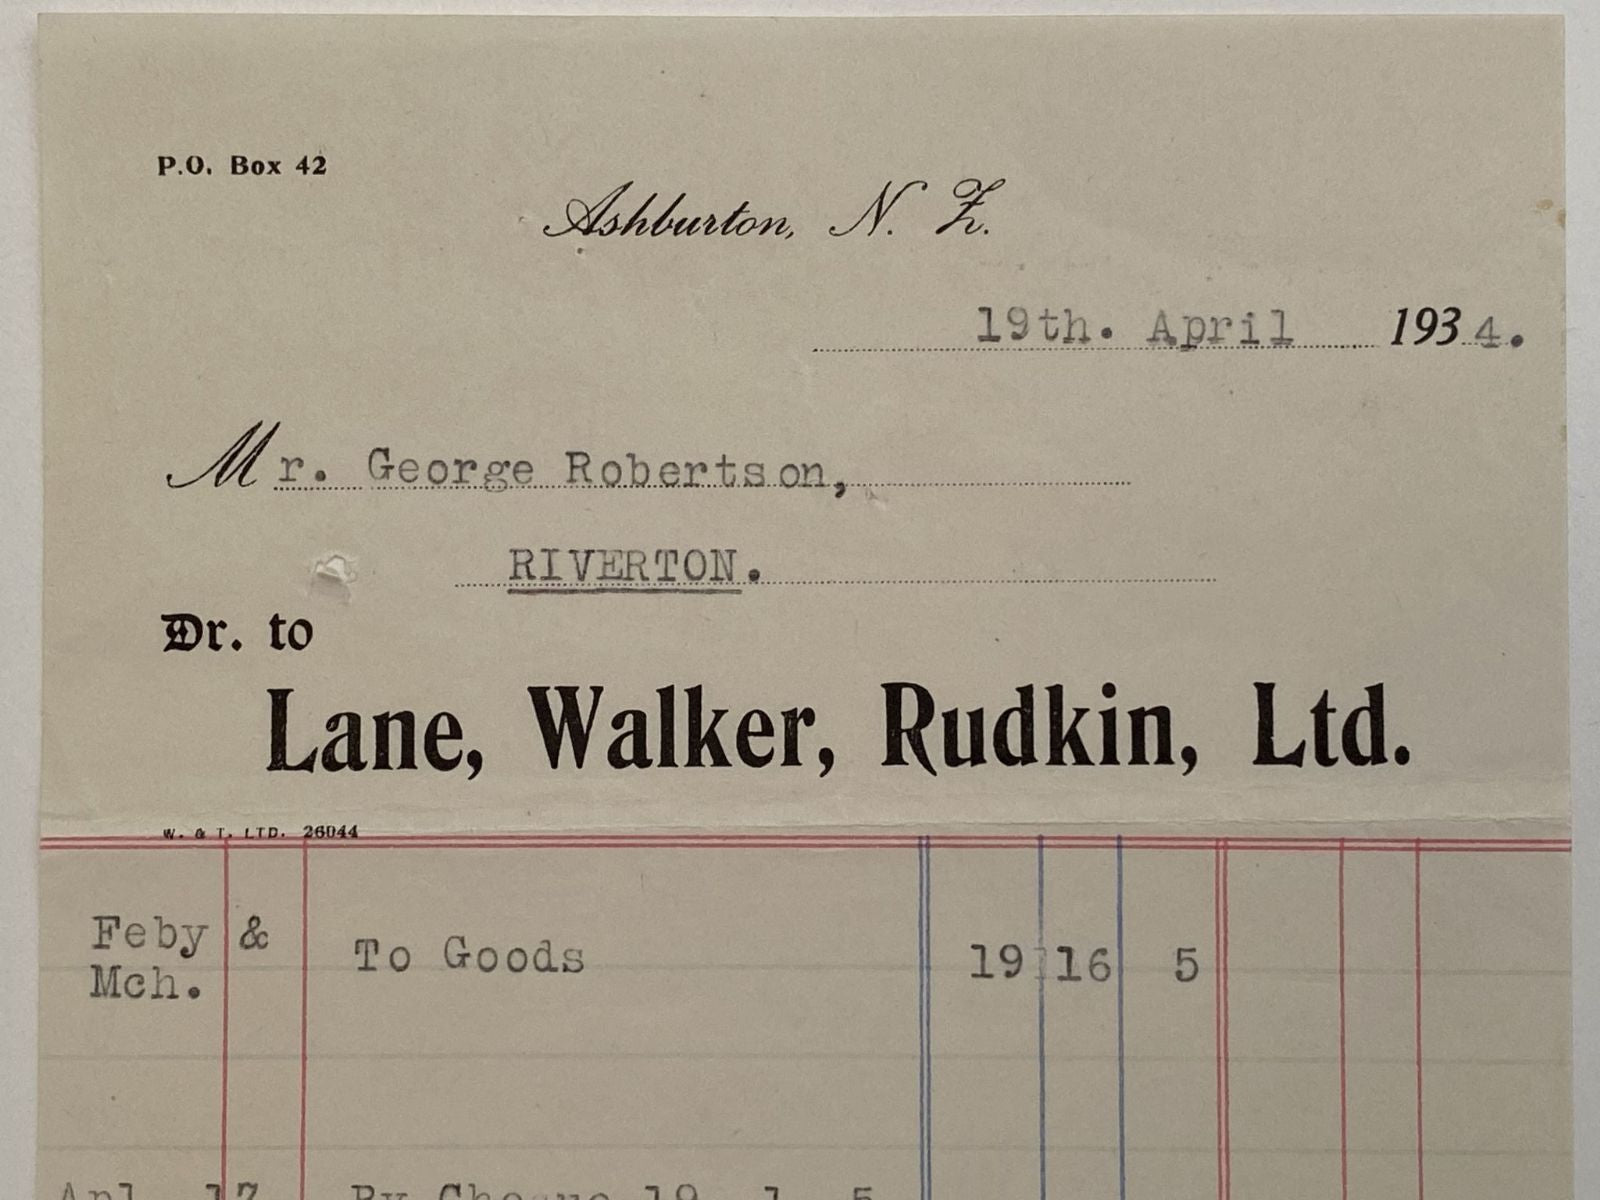 P.O. Box 42
Ashburton, N. Z.
19th. April 1934.
Mr. George Robertson,
RIVERTON.
Dr. to
Lane, Walker, Rudkin, Ltd.
W. & T. LTD. 26044
Feby & 
Mch. To Goods 19 16 5
Apl. 17 By Cheque 19 1 5